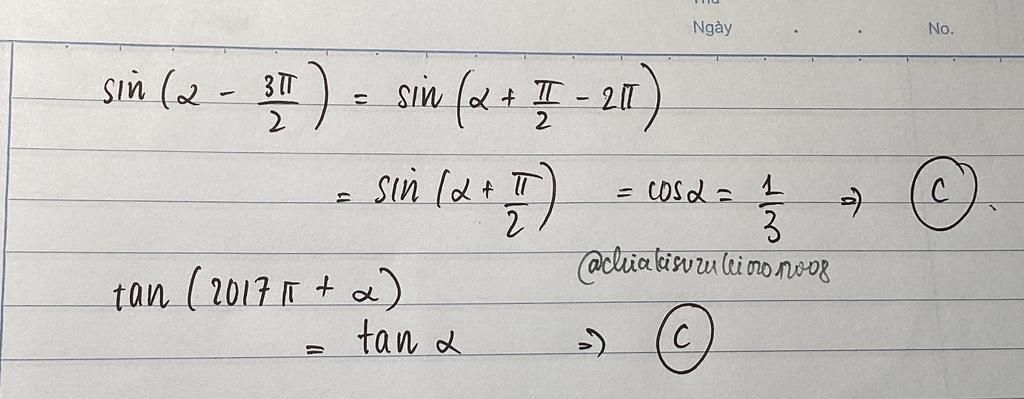 Thứ
Ngày . . No.
sin (α - 3π/2) = sin (α + π/2 - 2π)
= sin (α + π/2) = cosα = 1/3 => C.
@chiakisuzukinon008
tan (2017π + α)
= tan α => C